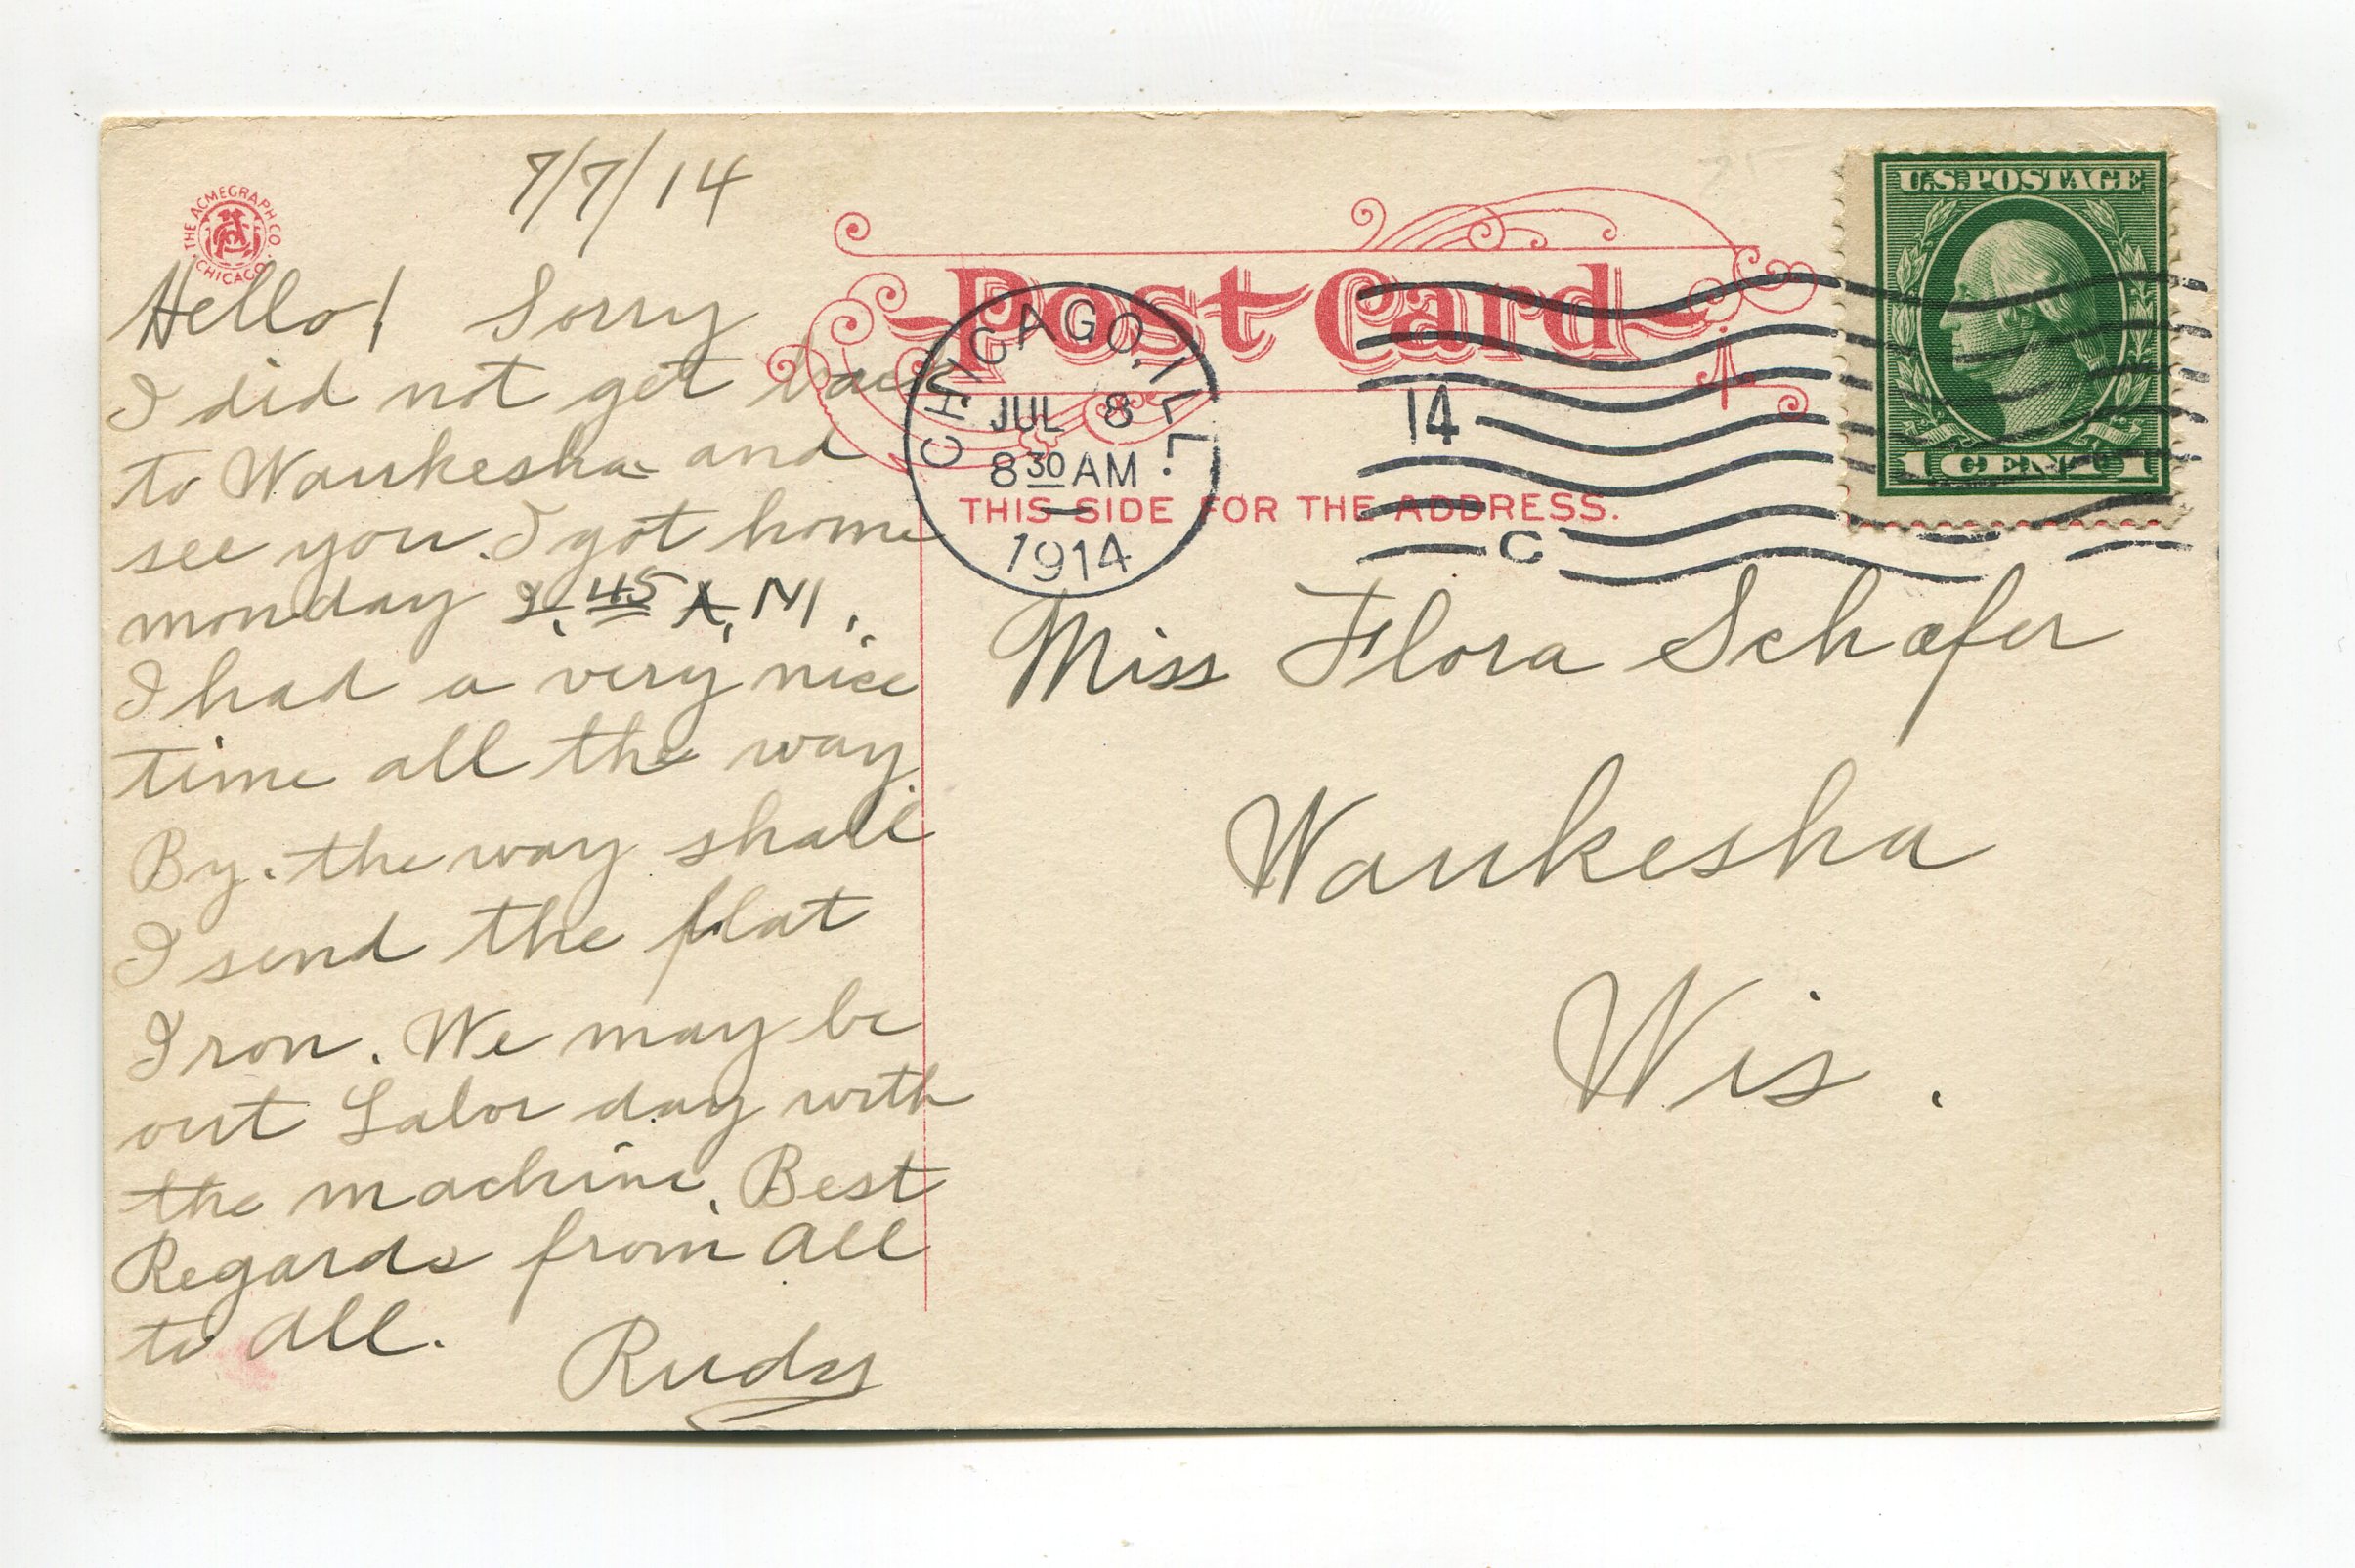 7/7/14
THE ACMEGRAPH CO. CHICAGO
Hello! Sorry
I did not get back
to Waukesha and
see you. I got home
monday 2.45 A.M.
I had a very nice
time all the way.
By. the way shall
I send the flat
Iron. We may be
out Labor day with
the machine. Best
Regards from all
to all.
Rudy
Post Card
CHICAGO, ILL.
JUL 8
8 30 AM
1914
14
C
THIS SIDE FOR THE ADDRESS.
U.S. POSTAGE
1 CENT 1
Miss Flora Schæfer
Waukesha
Wis.